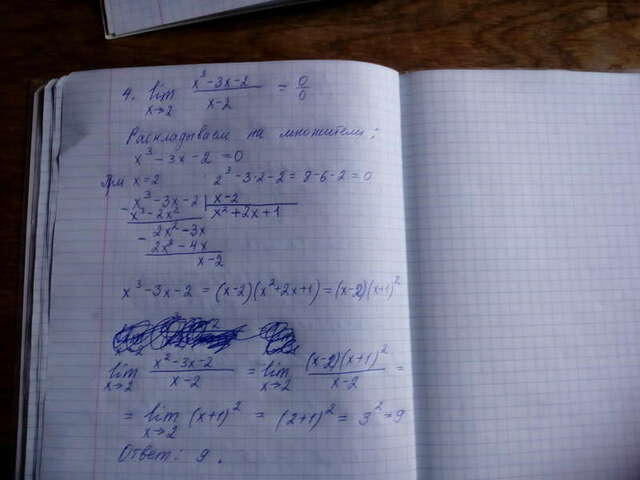 4. lim x→2 (x³-3x-2)/(x-2) = 0/0
Раскладываем на множители:
x³-3x-2=0
При x=2 2³-3·2-2=8-6-2=0
- x³-3x-2 | x-2
x³-2x² x²+2x+1
- 2x²-3x
2x²-4x
x-2
x³-3x-2 = (x-2)(x²+2x+1)=(x-2)(x+1)²
lim x→2 (x²-3x-2)/(x-2) = lim x→2 ((x-2)(x+1)²)/(x-2) =
= lim x→2 (x+1)² = (2+1)² = 3² = 9
Ответ: 9.